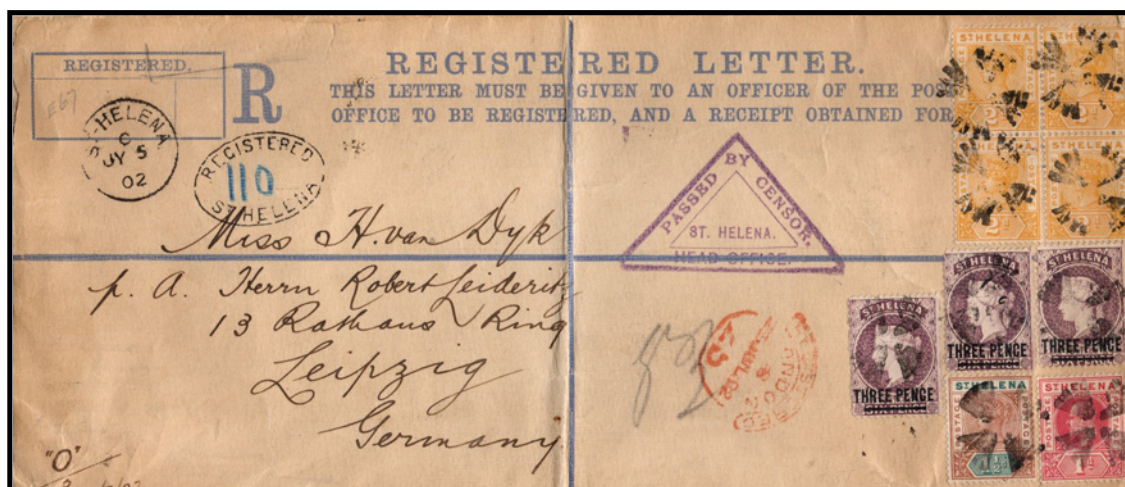 REGISTERED.
R
REGISTERED LETTER.
THIS LETTER MUST BE GIVEN TO AN OFFICER OF THE POS
OFFICE TO BE REGISTERED, AND A RECEIPT OBTAINED FOR
E67
ST HELENA
C
JY 5
02
REGISTERED
110
ST HELENA
PASSED BY CENSOR.
ST. HELENA.
HEAD OFFICE.
Miss H. van Dyk
p. A. Herrn Robert Leideritz
13 Rathaus Ring
Leipzig
Germany
"O"
LONDON
ST HELENA
ST HELENA
POSTAGE
POSTAGE
ST HELENA
THREE PENCE
SIXPENCE
ST HELENA
THREE PENCE
ST HELENA
THREE PENCE
ST HELENA
POSTAGE
POSTAGE
1½d
ST HELENA
POSTAGE
POSTAGE
1d